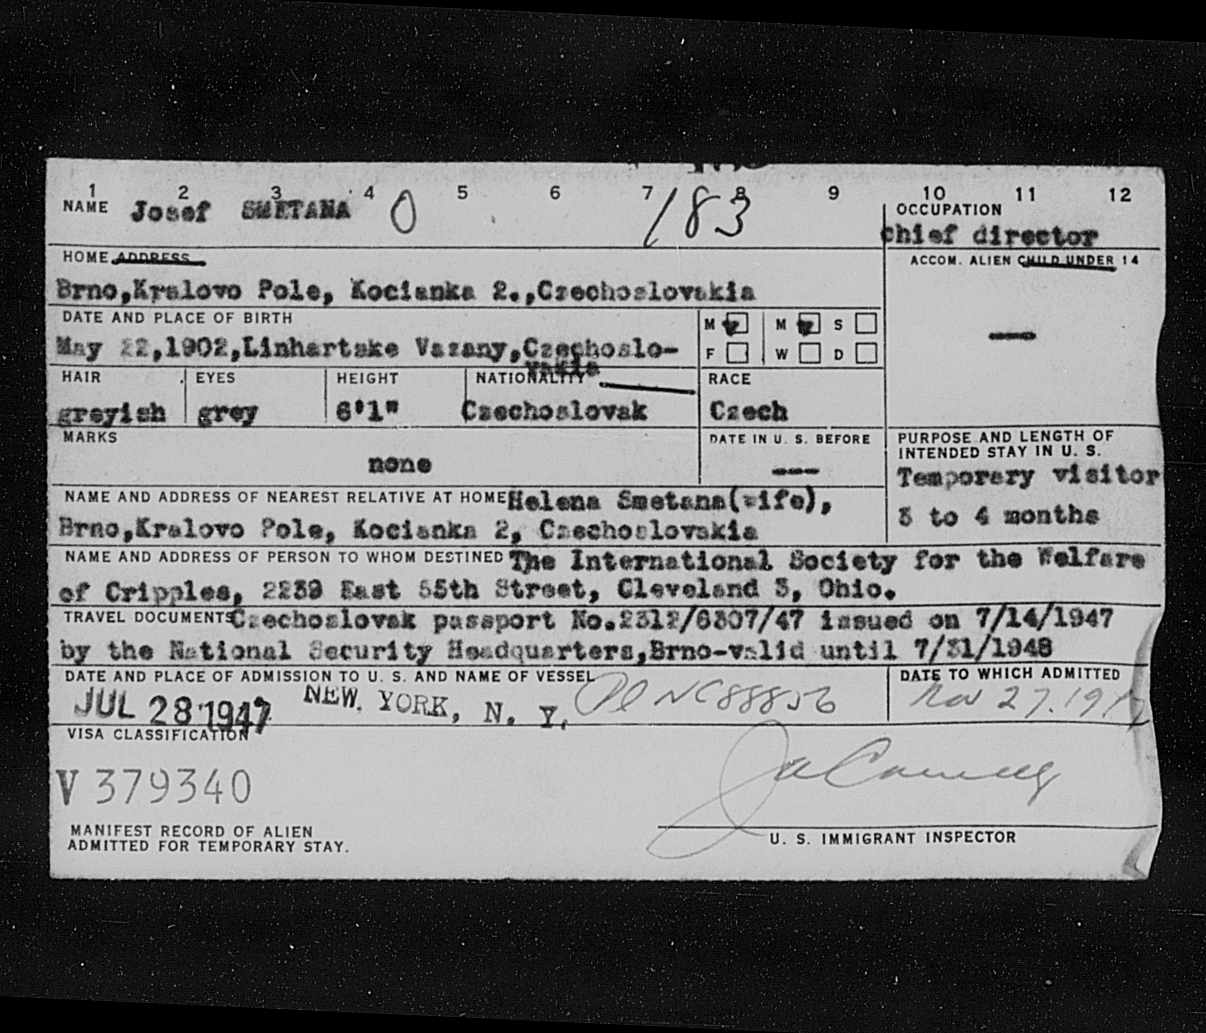 1 2 3 4 5 6 7 8 9 10 11 12
NAME Josef SMETANA 0 183
OCCUPATION
chief director
HOME ADDRESS
Brno,Kralovo Pole, Kocianka 2.,Czechoslovakia
ACCOM. ALIEN CHILD UNDER 14
—
DATE AND PLACE OF BIRTH
May 22,1902,Linhartske Vazany,Czechoslo-
vakia
M M S
F W D
HAIR EYES HEIGHT NATIONALITY RACE
greyish grey 6'1" Czechoslovak Czech
MARKS
none
DATE IN U. S. BEFORE
---
PURPOSE AND LENGTH OF
INTENDED STAY IN U. S.
Temporary visitor
3 to 4 months
NAME AND ADDRESS OF NEAREST RELATIVE AT HOME Helena Smetana(wife),
Brno,Kralovo Pole, Kocianka 2, Czechoslovakia
NAME AND ADDRESS OF PERSON TO WHOM DESTINED The International Society for the Welfare
of Cripples, 2239 East 55th Street, Cleveland 3, Ohio.
TRAVEL DOCUMENTS Czechoslovak passport No.2312/6307/47 issued on 7/14/1947
by the National Security Headquarters,Brno-valid until 7/31/1948
DATE AND PLACE OF ADMISSION TO U. S. AND NAME OF VESSEL
JUL 28 1947 NEW YORK, N. Y. Pl NC88856
DATE TO WHICH ADMITTED
Nov 27. 1947
VISA CLASSIFICATION
V 379340
MANIFEST RECORD OF ALIEN
ADMITTED FOR TEMPORARY STAY.
U. S. IMMIGRANT INSPECTOR